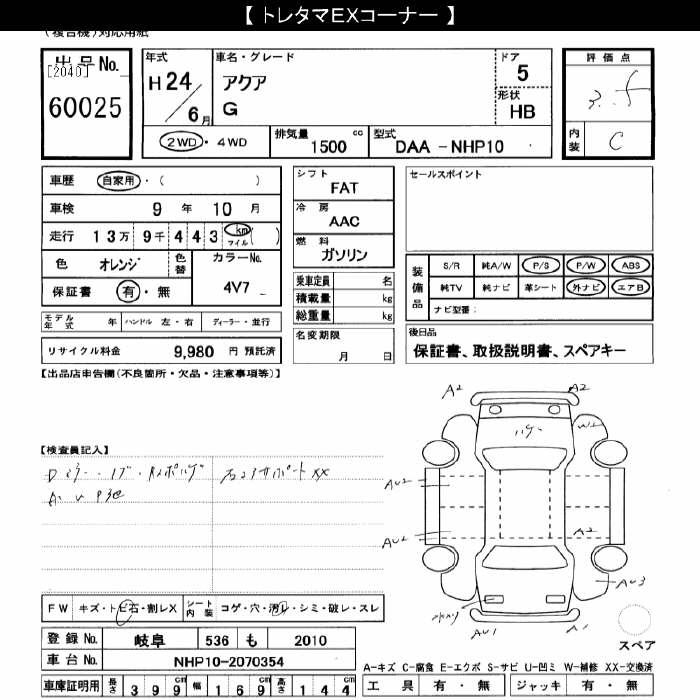 【 トレタマEXコーナー 】
(複合機)対応用紙
出品No.
[2040]
60025
年式
H24/6月
車名・グレード
アクア
G
ドア
5
形状
HB
評価点
3.5
内装
C
2WD・4WD
排気量 1500 cc
型式 DAA-NHP10
車歴 自家用・( )
車検 9年10月
走行 13万9千443 km マイル ( )
色 オレンジ 色替
カラーNo. 4V7
保証書 有・無
シフト
FAT
冷房
AAC
燃料
ガソリン
乗車定員 名
積載量 kg
総重量 kg
セールスポイント
装備品
S/R 純A/W P/S P/W ABS
純TV 純ナビ 革シート 外ナビ エアB
ナビ型番:
モデル年式 年 ハンドル 左・右 ディーラー・並行
リサイクル料金 9,980 円 預託済
名変期限
月 日
後日品
保証書、取扱説明書、スペアキー
【出品店申告欄(不良箇所・欠品・注意事項等)】
【検査員記入】
A2 A2
W2
AU2
AU2 A2
AU3
AU1 A1
FW キズ・トビ石・割レX シート内装 コゲ・穴・汚レ・シミ・破レ・スレ
登録No. 岐阜 536 も 2010
車台No. NHP10-2070354
車庫証明用 長さ 399 cm 幅 169 cm 高さ 144 cm
スペア
A-キズ C-腐食 E-エクボ S-サビ U-凹ミ W-補修 XX-交換済
工具 有・無 ジャッキ 有・無